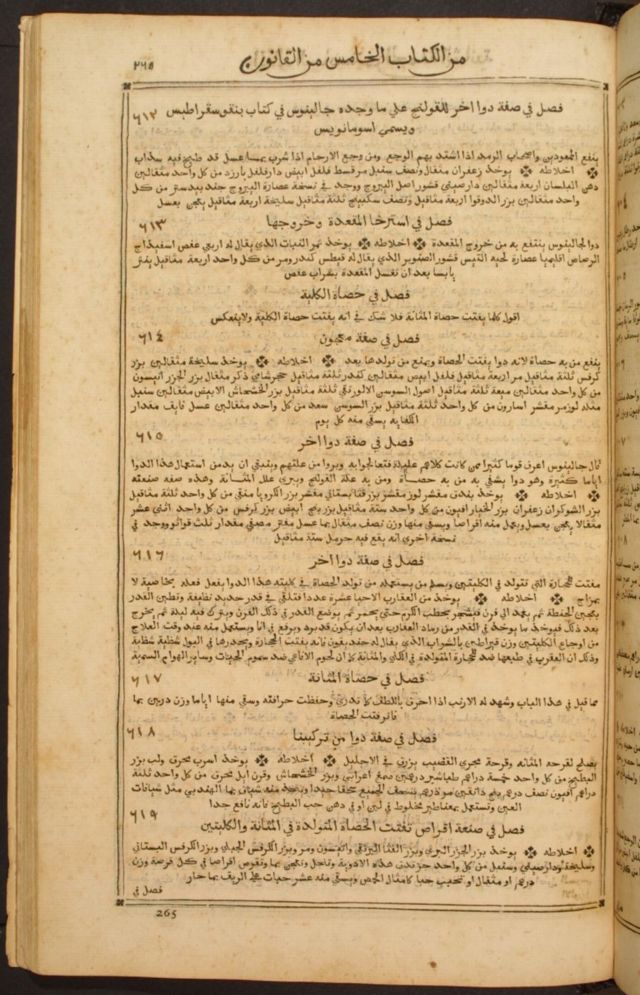 ٢٦٥
من الكتاب الخامس من القانون
فصل في صفة دوا اخر للقولنج علي ما وجده جالينوس في كتاب بنقوسقراطيس
٦١٢
ويسمي اسومانويس
ينفع الممعودين واصحاب الرمد اذا اشتد بهم الوجع ومن وجع الارحام اذا شرب بما عسل قد طبخ فيه سذاب
اخلاطه يوخذ زعفران مثقال ونصف سنبل مر قسط فلفل ابيض دارفلفل بارزد من كل واحد مثقالين
دهن البلسان اربعة مثقالين دارصيني قشور اصل اليبروج ووجد في نسخة عصارة اليبروج جندبيدستر من كل
واحد مثقالين بزر الدوقوا اربعة مثاقيل ونصف سكبينج ثلثة مثاقيل سليخة اربعة مثاقيل يعجن بعسل
فصل في استرخا المقعدة وخروجها
٦١٣
دوا لجالينوس ينتفع به من خروج المقعدة اخلاطه يوخذ ثمر النبات الذي يقال له اربعي عفص اسفيداج
الرصاص اقليميا عصارة لحية التيس قشور الصنوبر الذي يقال له فيطس كندر ومر من كل واحد اربعة مثاقيل ينثر
يابسا بعد ان تغسل المقعدة بشراب عفص
فصل في حصاة الكلية
اقول كلما يفتت حصاة المثانة فلا شك في انه يفتت حصاة الكلية ولا ينعكس
فصل في صفة معجون
٦١٤
ينفع من به حصاة لانه دوا يفتت الحصاة ويمنع من تولدها بعد اخلاطه يوخذ سليخة مثقالين بزر
كرفس ثلثة مثاقيل مر اربعة مثاقيل فلفل ابيض مثقالين كندر ثلثة مثاقيل حجر شامي ذكر مثقال بزر الجزر انيسون
من كل واحد مثقالين ميعة ثلثة مثاقيل اصول السوسن الالورنقي ثلثة مثاقيل بزر الخشخاش الابيض مثقالين سنبل
مثله لوز مر مقشر اسارون من كل واحد ثلثة مثاقيل بزر السوسن سعد من كل واحد مثقالين عسل فايق مقدار
الكفاية يسقي منه كل يوم
فصل في صفة دوا اخر
٦١٥
قال جالينوس اعرف قوما كثيرا ممن كانت كلاهم عليلة فتعالجوا به وبروا من علتهم وينبغي ان يدمن استعمال هذا الدوا
اياما كثيرة وهو دوا يشفي به من به حصاة ومن به علة القولنج ويبري علل المثانة وهذه صفه صنعته
اخلاطه يوخذ بندق مقشر لوز مقشر بزر قثا بستاني مقشر بزر الكرويا منقي من كل واحد ثلثة مثاقيل
بزر الشوكران زعفران بزر الخيار افيون من كل واحد ستة مثاقيل بزر بنج ابيض بزر كرفس من كل واحد اثني عشر
مثقالا يعجن بعسل ويعمل منه اقراصا ويسقي منها وزن نصف مثقال بما عسل مفتر مصفي مقدار ثلث قوانوو ووجد في
نسخة اخري انه يقع فيه حرمل ستة مثاقيل
فصل في صفة دوا اخر
٦١٦
مفتت للحجارة التي تتولد في الكليتين ويسلم من يستعمله من تولد الحصاة في كليته هذا الدوا يفعل فعله بخاصية لا
بمزاج اخلاطه يوخذ من العقارب الاحيا عشرة عددا فتلقي في قدر جديد نظيفة وتطين القدر
بعجين الحنطة ثم يعمد الي فرن فيسجر بحطب الكرم حتي يحمر ثم يوضع القدر في ذلك الفرن ويترك فيه ليلة ثم يخرج
بعد ذلك فيوخذ ما يوجد في القدر من رماد العقارب بعد ان يكون قد برد ويرفع في انا ويستعمل منه عند وقت العلاج
من اوجاع الكليتين وزن قيراطين بالشراب الذي يقال له جنديقون فانه يفتت الحجارة ويحدرها في البول شظية شظية
وذلك ان العقرب في طبعها ضد للحجارة المتولدة في الكلي والمثانة كما ان لحوم الافاعي ضد سموم الحيات وساير الهوام السمية
فصل في حصاة المثانة
٦١٧
مما قيل في هذا الباب وشهد له الارنب اذا احرق باللطف كما ندري وحفظت حرافته وسقي منها اياما وزن درهمين بما
فاتر فتت الحصاة
فصل في صفة دوا من تركيبنا
٦١٨
يصلح لقرحه المثانه وقرحة مجري القضيب يزرق في الاحليل اخلاطه يوخذ اسرب محرق ولب بزر
البطيخ من كل واحد خمسة دراهم طباشير درهمين صمغ اعرابي وبزر الخشخاش وقرن ايل محرق من كل واحد ثلثة
دراهم افيون نصف درهم بنج دانقين مر درهم يسحق الجميع سحقا جيدا ويتخذ منه شياف بما الهندبي مثل شيافات
العين وتستعمل بمقاطير مخلوط في لبن او في دهن حب البطيخ فانه نافع جدا
فصل في صنعة اقراص تفتت الحصاة المتولدة في المثانة والكليتين
٦١٩
اخلاطه يوخذ بزر الجزر البري وبزر القثا البرقي وانيسون ومر وبزر الكرفس الجبلي وبزر الكرفس البستاني
وسليخة ودارصيني وسنبل من كل واحد جز تدق هذه الادوية وتنخل وتعجن بما وتقرص اقراصا في كل قرصة وزن
درهم او مثقال او تحبب حبا كامثال الحمص ويسقي منه عشر حبات علي الريق بما حار
فصل في
265